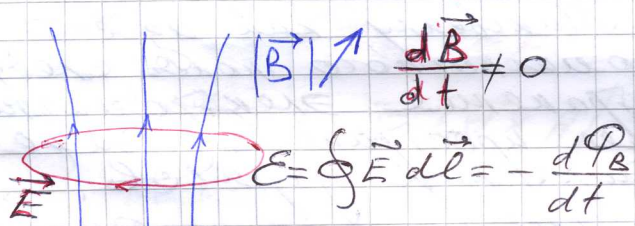 |B⃗|↗ dB⃗/dt ≠ 0
E⃗
ℰ = ∮ E⃗ dl⃗ = - dΦ_B/dt